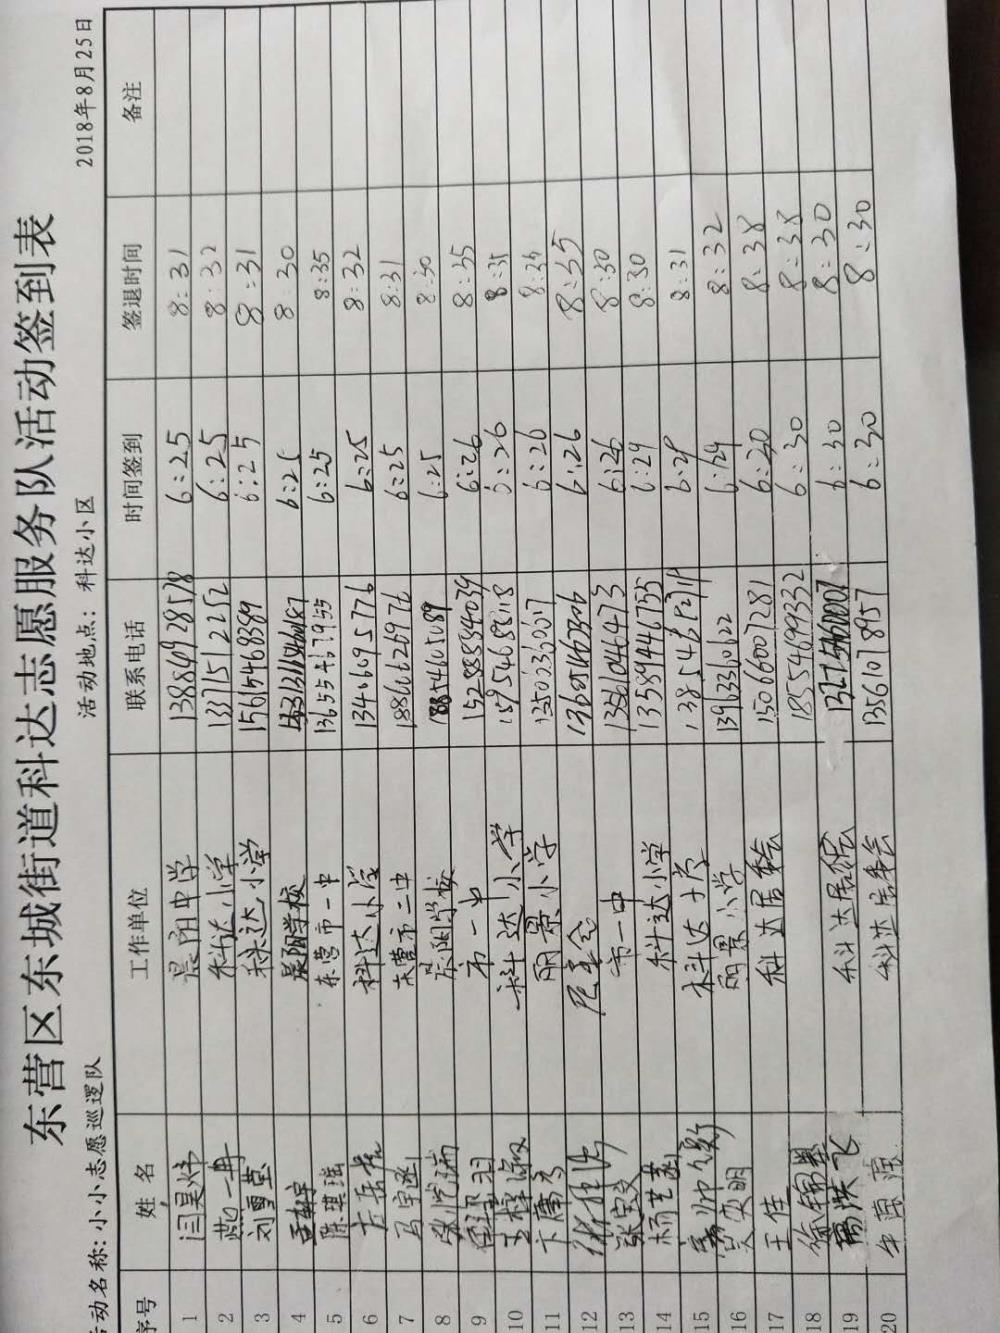 东营区东城街道科达志愿服务队活动签到表
活动名称：小小志愿巡逻队 活动地点：科达小区 2018年8月25日
序号 姓名 工作单位 联系电话 时间签到 签退时间 备注
1 闫昊炜 晨阳中学 13884928578 6:25 8:31
2 燕一冉 科达小学 13371512252 6:25 8:32
3 刘雪莹 科达小学 15615468389 6:25 8:31
4 晨阳学校 6:25 8:30
5 陈琪瑶 东营市一中 13655467955 6:25 8:35
6 科达小学 13406695776 6:25 8:32
7 马宇涵 东营市二中 18866626976 6:25 8:31
8 晨阳学校 18854605089 6:25 8:30
9 市一中 15288834039 6:26 8:35
10 科达小学 15954688818 6:26 8:35
11 丽景小学 6:26 8:34
12 居委会 6:26 8:35
13 张宝文 市一中 13561046473 6:26 8:30
14 杨艺菡 科达小学 13589446755 6:29 8:30
15 科达小学 6:29 8:31
16 吴奕明 丽景小学 13963361622 6:29 8:32
17 王佳 科达居委会 15066007281 6:30 8:38
18 徐锦碁 18554699332 6:30 8:38
19 科达居委会 6:30 8:30
20 科达居委会 13561078957 6:30 8:30